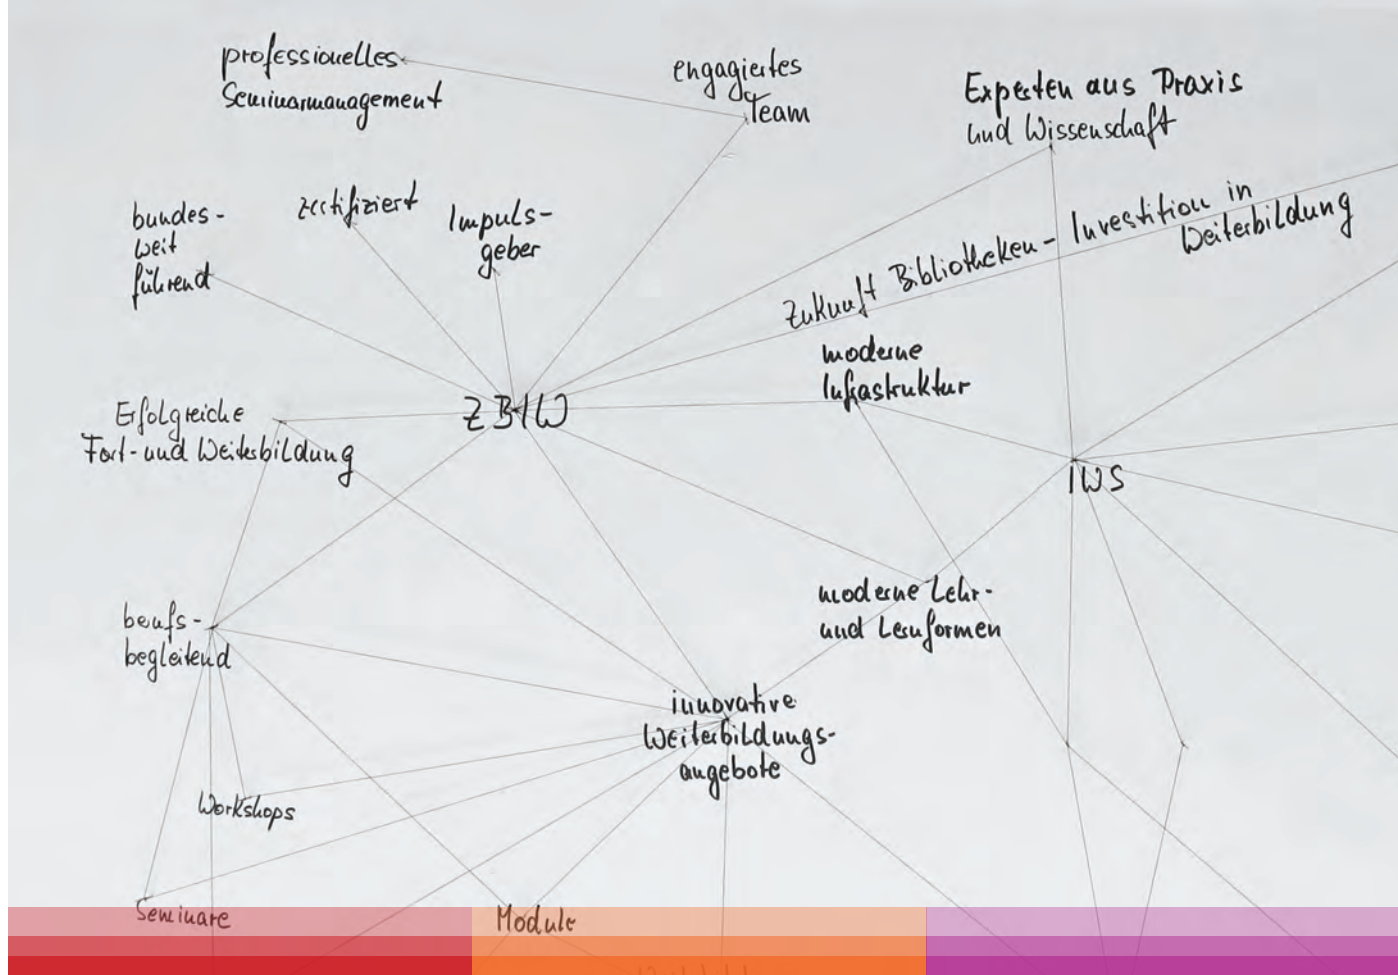 professionelles
Seminarmanagement
engagiertes
Team
Experten aus Praxis
und Wissenschaft
bundes-
weit
führend
zertifiziert
Impuls-
geber
Zukunft Bibliotheken - Investition in
Weiterbildung
moderne
Infrastruktur
Erfolgreiche
Fort- und Weiterbildung
ZBIW
IWS
berufs-
begleitend
moderne Lehr-
und Lernformen
innovative
Weiterbildungs-
angebote
Workshops
Seminare
Module